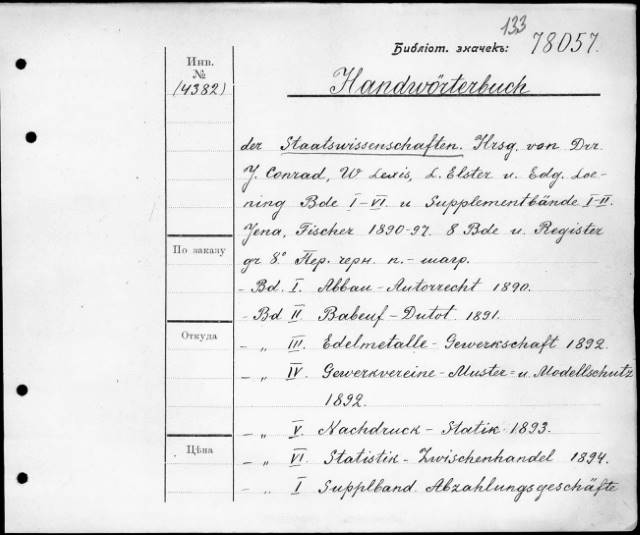 133
Библіот. значекъ: 78057.
Инв.
№
(4382)
Handwörterbuch
der Staatswissenschaften. Hrsg. von Drr.
J. Conrad, W Lexis, L. Elster u. Edg. Loe-
ning Bde I-VI. u Supplementbände I-II.
Jena, Fischer 1890-97. 8 Bde u. Register
По заказу
gr 8° Пер. черн. п.-шагр.
- Bd. I. Abbau - Autorrecht 1890.
- Bd II Babeuf - Dutot. 1891.
Откуда
- „ III. Edelmetalle - Gewerkschaft 1892.
- „ IV. Gewerkvereine - Muster= u. Modellschutz
1892.
- „ V. Nachdruck - Statik. 1893.
Цѣна
- „ VI. Statistik - Zwischenhandel 1894.
- „ I Supplband. Abzahlungsgeschäfte